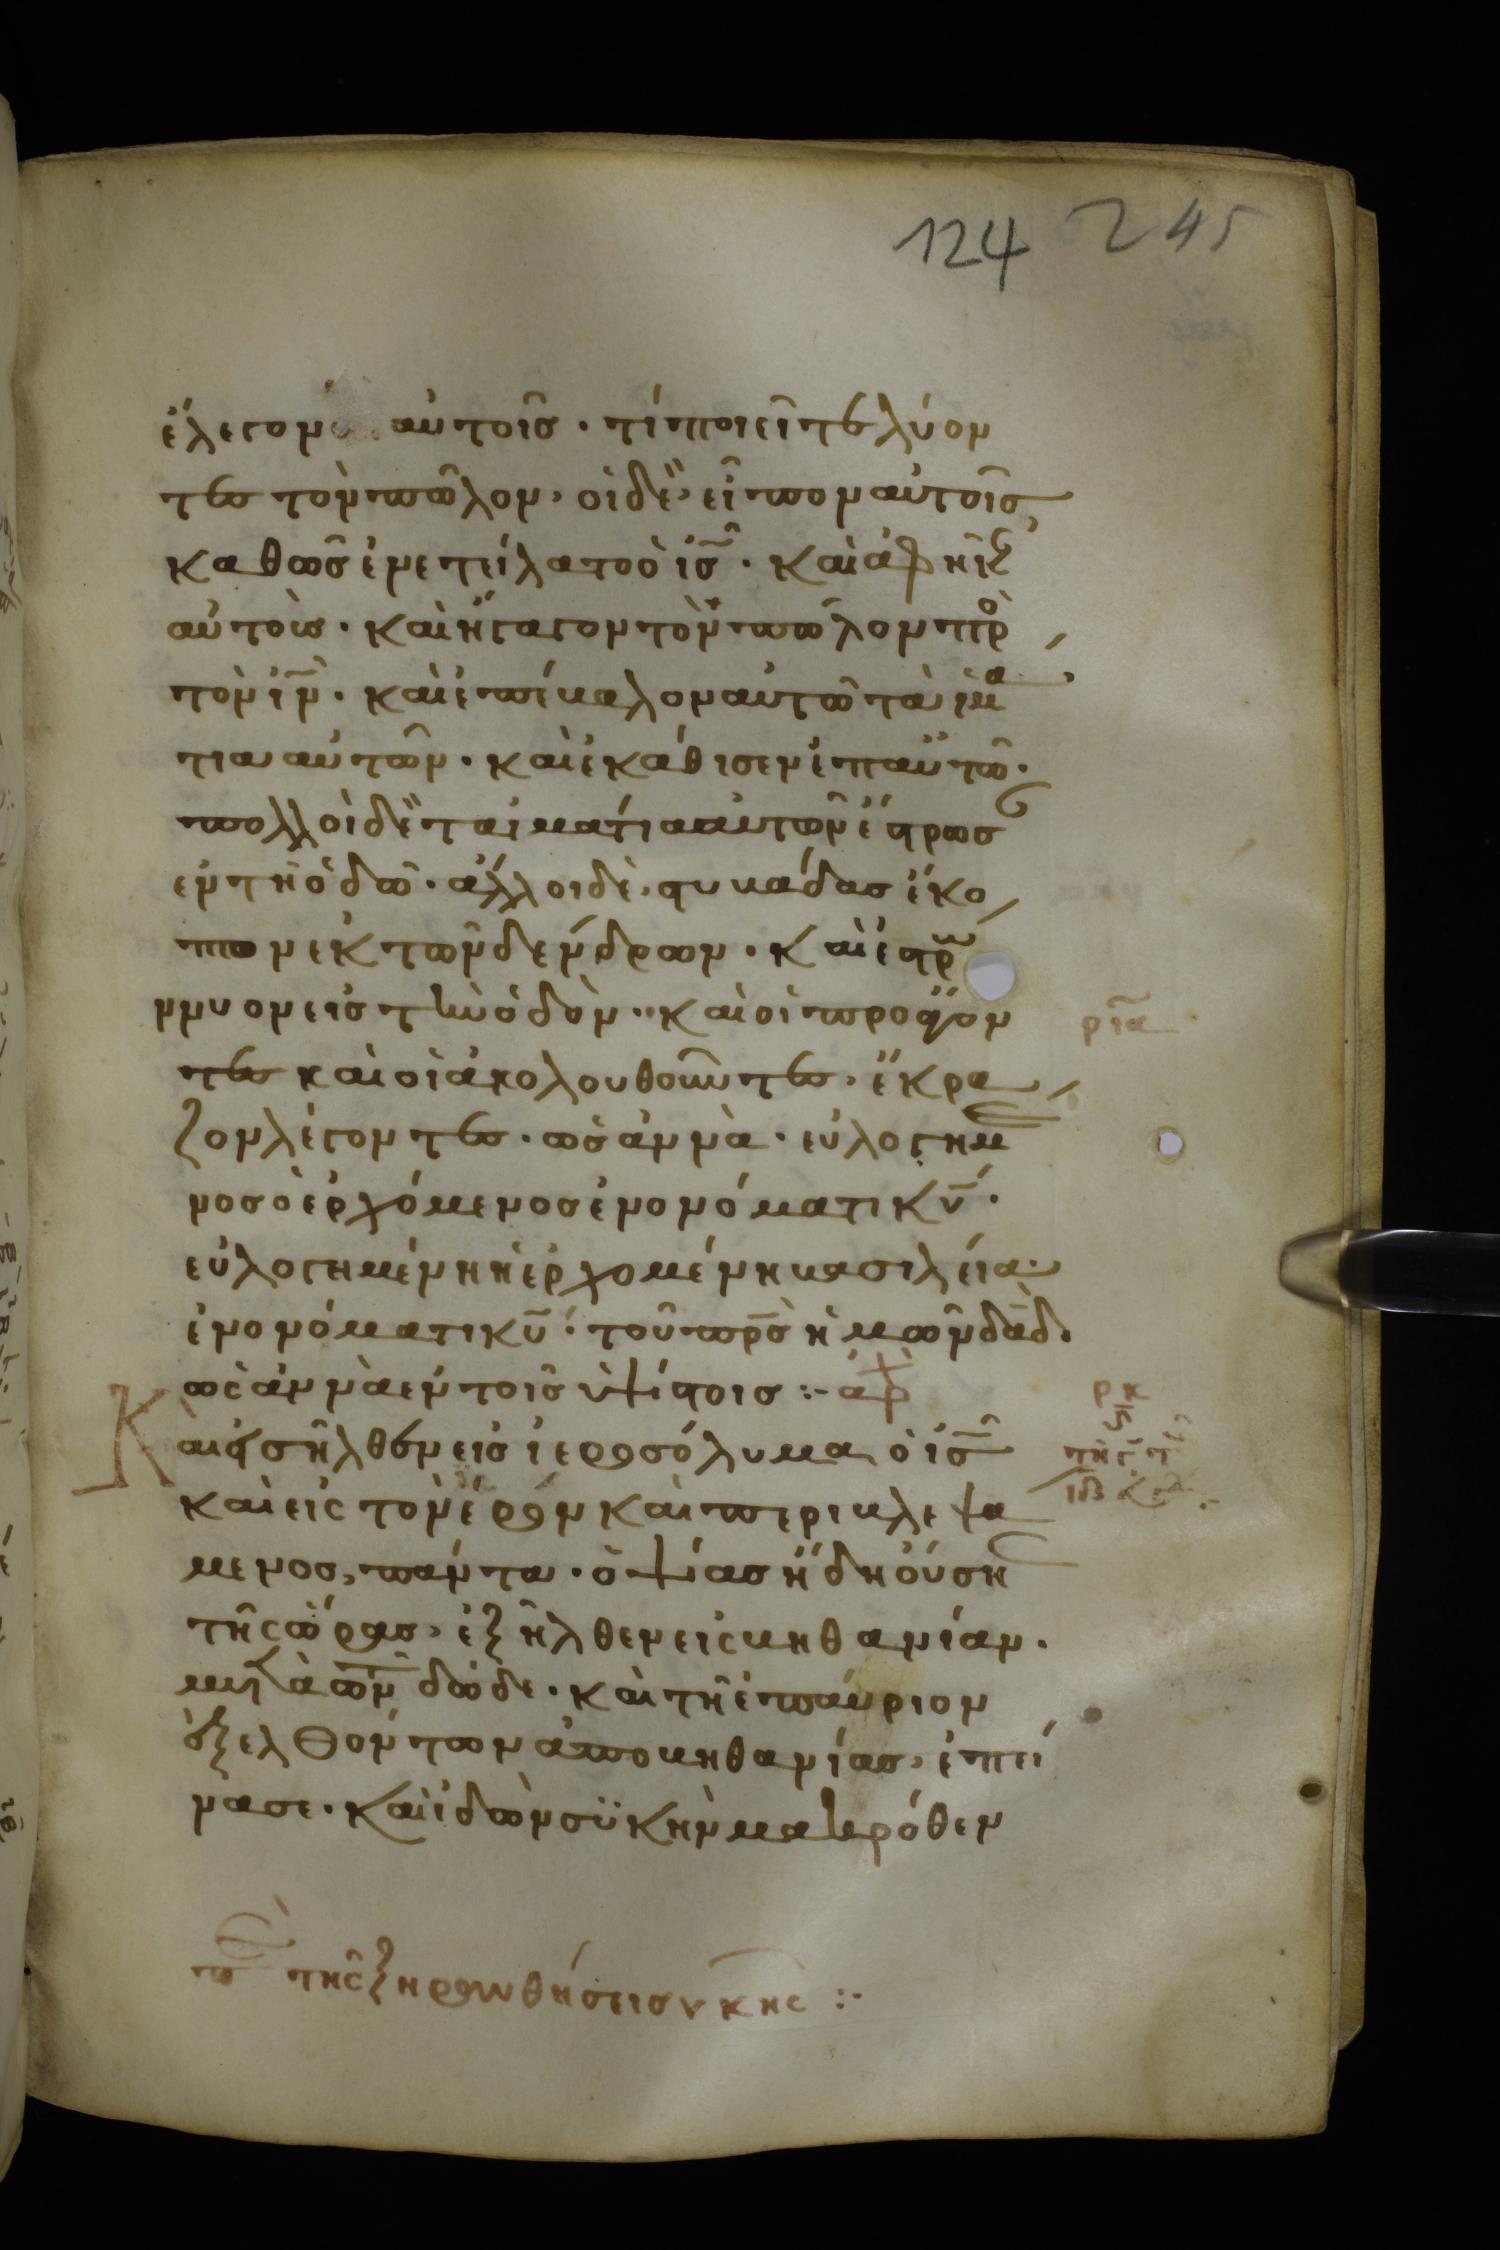 124 245
ἔλεγον αὐτοῖσ · τί ποιεῖτε λύον
τεσ τὸν πῶλον, οἱ δὲ, εἶπον αὐτοῖσ,
καθῶσ ἐνετείλατο ὁ ἰ̅ς̅ · καὶ ἀφῆκ
αὐτοὺσ · καὶ ἤγαγον τὸν πῶλον πρ̀ο
τὸν ἰ̅ν̅ · καὶ ἐπέβαλον αὐτῶ τὰ ἱμα
τια αὐτῶν · καὶ ἐκάθισεν ἐπ αὐτῶ ·
πολλοὶ δὲ τα ἱμάτια αὐτῶν ἔστρωσ
εν τῆ ὁδῶ · ἄλλοι δὲ, στυβάδασ ἔκο
πτον ἐκ τῶν δένδρων · καὶ ἐστρω
ννυον εἰσ τὴν ὁδόν · καὶ οἱ προάγον
τεσ καὶ οἱ ἀκολουθοῦντεσ, ἔκρα
ζον λέγοντεσ · ὡσἀννὰ · εὐλογημε
νοσ ὁ ἐρχόμενοσ ἐν ονόματι κ̅υ̅ ·
εὐλογημένη ἡ ἐρχομένη βασιλεία
ἐν ονόματι κ̅υ̅ · τοῦ π̅ρ̅σ̅ ἡμῶν δ̅α̅δ̅ ·
ὡσἀννὰ ἐν τοῖσ ὑψίστοισ :- ἀρχ
Καὶ εἰσῆλθεν εἰσ ἱεροσόλυμα ὁ ἰ̅ς̅
καὶ εἰς τὸ ἱερὸν καὶ περιβλεψα
μενοσ, πάντα · ὀψίασ ἤδη οὔσησ
τῆς ὥρασ, ἐξῆλθεν εἰς βηθανίαν ·
μετὰ τῶν δώδε · καὶ τῆ ἐπαύριον
ἐξελθόντων ἀπο βηθανίασ, ἐπεί
νασε · καὶ ἰδὼν συκὴν μακρόθεν
ρια
ρκ
ϛ
τῆς ξηρανθήσεισ συκῆς :-